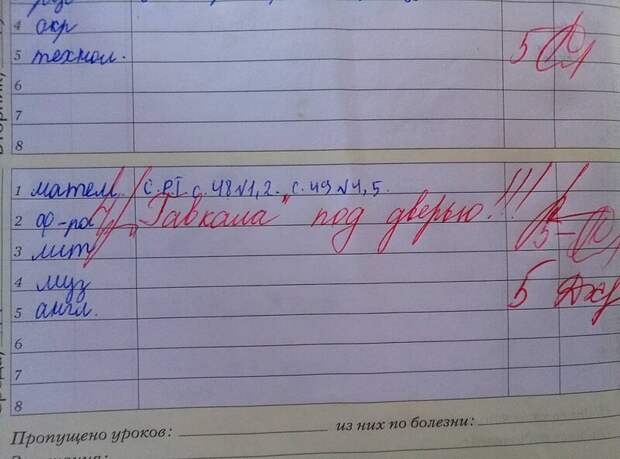 4 окр
5 технол. 5
6
7
8
1 матем. с. РТ с. 48 №1, 2. с. 49 №4, 5.
2 ф-ра "Гавкала" под дверью!!!
3 лит 5-
4 муз
5 англ. 5
6
7
8
Пропущено уроков: из них по болезни: